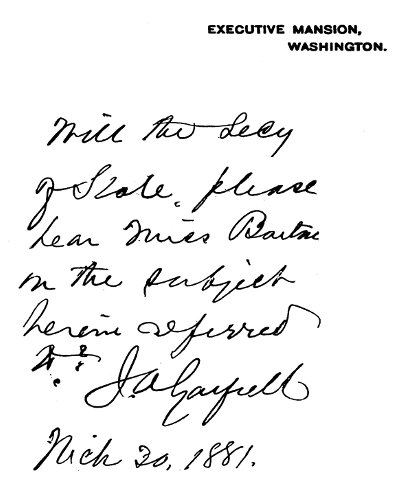 EXECUTIVE MANSION,
WASHINGTON.
Will the Secy
of State, please
hear Miss Barton
on the subject
herein referred
to.
J. A. Garfield
Mch 30, 1881.